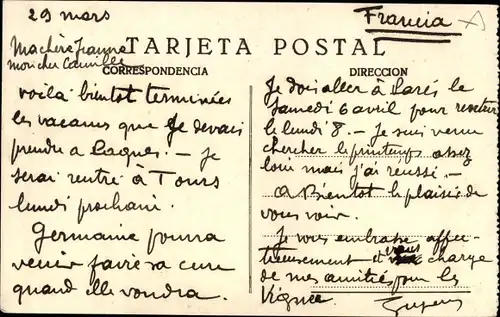 29 mars
Francia
Ma chère Jeanne
mon cher Camille
TARJETA POSTAL
CORRESPONDENCIA
DIRECCION
voilà bientot terminées
les vacances que je devais
prendre à Cagnes. — Je
serai rentré à Tours
lundi prochain.
Germaine pourra
venir faire sa cure
quand elle voudra.
Je dois aller à Paris le
Samedi 6 avril pour rentrer
le lundi 8. — Je suis venu
chercher le printemps assez
loin mais j'ai réussi. —
A Bientot le plaisir de
vous voir.
Je vous embrasse affec-
tueusement et vous charge
de mes amitiés pour les